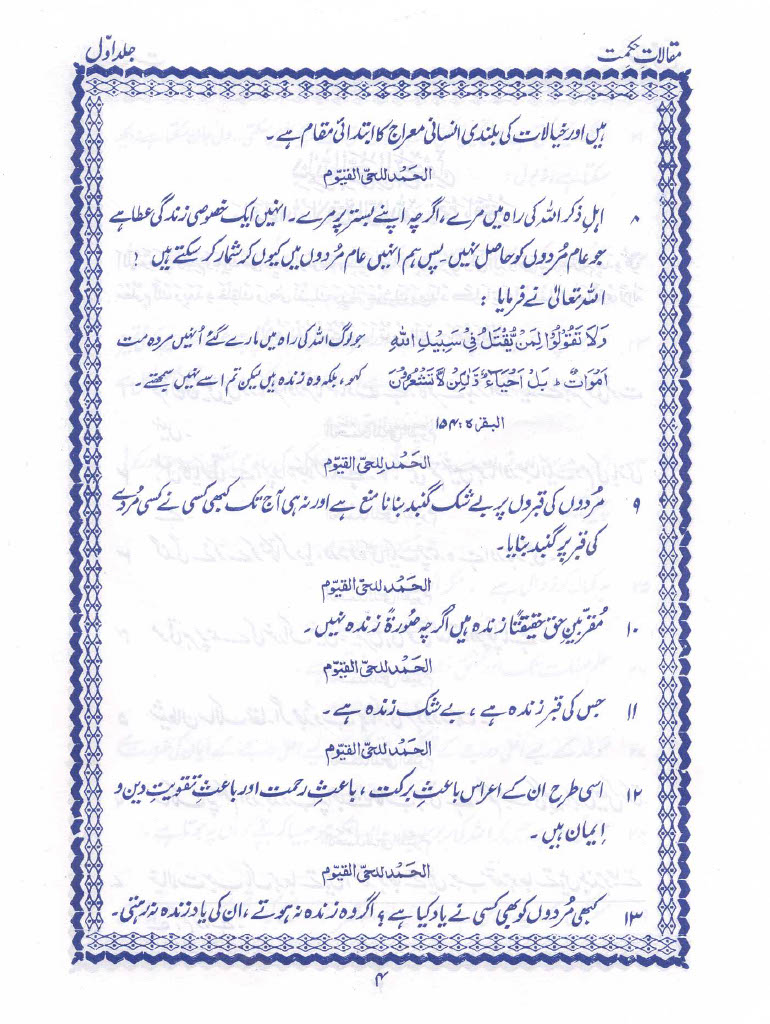 مقالاتِ حکمت
جلد اوّل
ہیں اور خیالات کی بلندی انسانی معراج کا ابتدائی مقام ہے ۔
الحَمدُ للحیِّ القیُّوم
۸ اہلِ ذکر اللہ کی راہ میں مرے، اگرچہ اپنے بستر پر مرے۔ انہیں ایک خصوصی زندگی عطا ہے
جو عام مُردوں کو حاصل نہیں۔ پس ہم انہیں عام مُردوں میں کیوں کر شمار کر سکتے ہیں ؟
اللہ تعالیٰ نے فرمایا :
وَلَا تَقُوْلُوْا لِمَنْ یُّقْتَلُ فِیْ سَبِیْلِ اللّٰہِ جو لوگ اللہ کی راہ میں مارے گئے اُنہیں مردہ مت
اَمْوَاتٌ ؕ بَلْ اَحْیَآءٌ وَّلٰکِنْ لَّا تَشْعُرُوْنَ کہو، بلکہ وہ زندہ ہیں لیکن تم اسے نہیں سمجھتے ۔
البقرۃ : ۱۵۴
الحَمدُ للحیِّ القیُّوم
۹ مُردوں کی قبروں پر بے شک گنبد بنانا منع ہے اور نہ ہی آج تک کبھی کسی نے کسی مُردے
کی قبر پر گنبد بنایا۔
الحَمدُ للحیِّ القیُّوم
۱۰ مُقرّبینِ حق حقیقتًا زندہ ہیں اگرچہ صُورۃً زندہ نہیں ۔
الحَمدُ للحیِّ القیُّوم
۱۱ جس کی قبر زندہ ہے ، بے شک زندہ ہے ۔
الحَمدُ للحیِّ القیُّوم
۱۲ اسی طرح ان کے اعراس باعثِ برکت ، باعثِ رحمت اور باعثِ تقویتِ دین و
اِیمان ہیں ۔
الحَمدُ للحیِّ القیُّوم
۱۳ کبھی مُردوں کو بھی کسی نے یاد کیا ہے ؟ اگر وہ زندہ نہ ہوتے ، ان کی یاد زندہ نہ رہتی ۔
۴